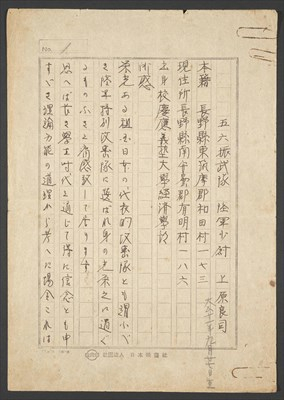 1
五六振武隊 陸軍少尉 上原良司
本籍 長野縣東筑摩郡和田村一七三
現住所 長野縣南安曇郡有明村一八六
出身校 慶應義塾大學經濟學部
所感
栄光ある祖国日本の代表的攻撃隊とも謂ふべ
き陸軍特別攻撃隊に選ばれ身の光栄之に過ぐ
るものなきと痛感致して居ります
思へば長き學生時代を通じて得た信念とも申
すべき理論万能の道理から考へた場合これは
社団法人